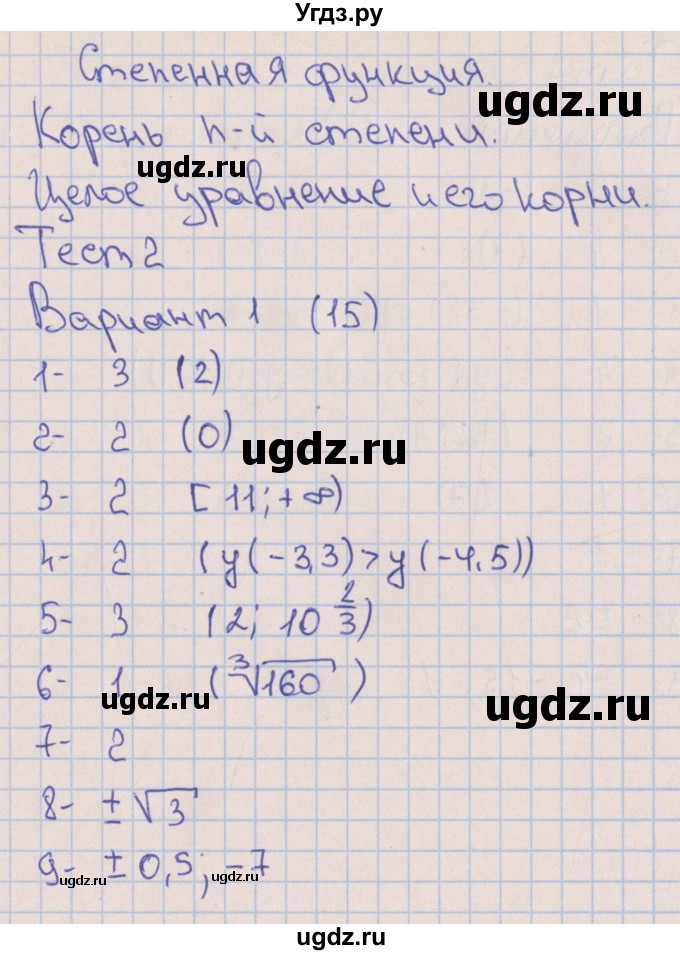 Угдз.ру
Степенная функция.
ugdz.ru
Корень n-й степени.
ugdz.ru
Целое уравнение и его корни.
Тест 2
Вариант 1 (15)
1- 3 (2)
2- 2 (0)
ugdz.ru
3- 2 [11; +∞)
4- 2 (y(-3,3) > y(-4,5))
5- 3 (2; 10 2/3)
6- 1 (∛160)
ugdz.ru
ugdz.ru
7- 2
8- ±√3
9- ±0,5; -7
ugdz.ru
ugdz.ru
ugdz.ru